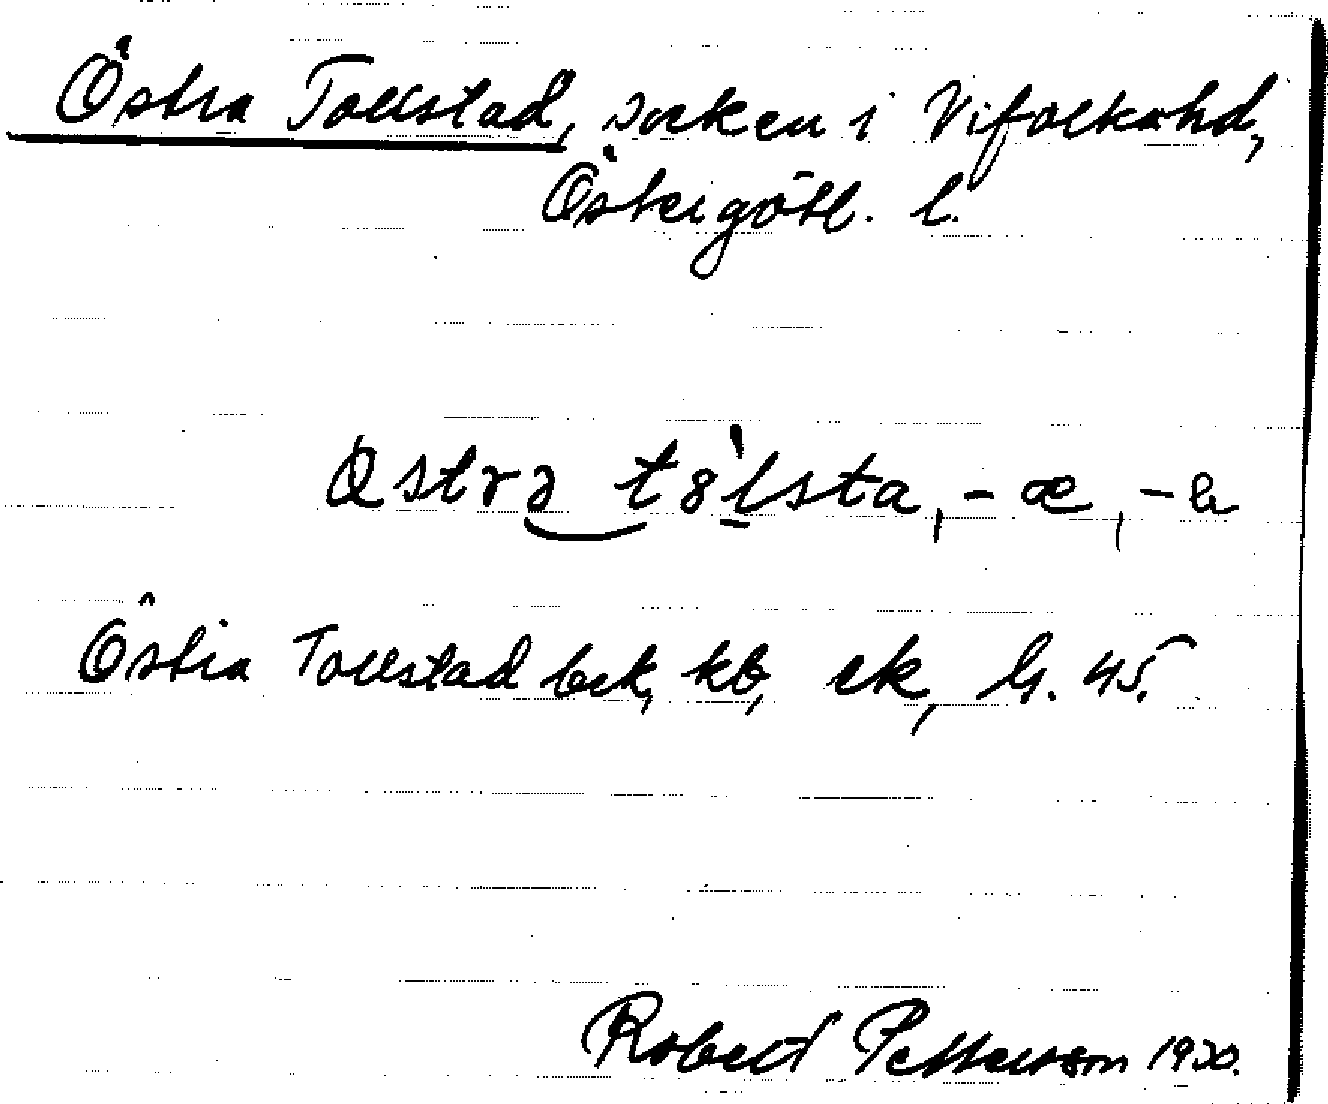 Östra Tollstad, socken i Vifolkahd,
Östergötl. l.
Östra Tollstad bck, kb, ek, G. 45.
Robert Pettersson 1920.